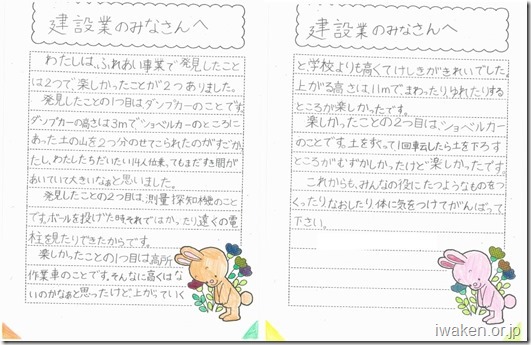 建設業のみなさんへ
わたしは、ふれあい事業で発見したこと
は2つで楽しかったことが2つありました。
発見したことの1つ目はダンプカーのことです。
ダンプカーの高さは3mでショベルカーのところに
あった土の山を2つ分のせてこられたのがすごか
た。わたしたちだいたい14人位乗ってもまだすき間が
あいていて大きいなぁと思いました。
発見したことの2つ目は、測量探知機のこと
です。ボールを投げた時それではかったり遠くの電
柱を見たりできたからです。
楽しかったことの1つ目は高所
作業車のことです。そんなに高くはな
いのかなぁと思ったけど上がっていく
建設業のみなさんへ
と学校よりも高くてけしきがきれいでした。
上がる高さは、11mで、まわったりゆれたりする
ところが楽しかったです。
楽しかったことの2つ目は、ショベルカー
のことです。土をすくって1回転したら土を下ろす
ところがむずかしかったけど楽しかったです。
これからも、みんなの役にたつようなものをつ
くったりなおしたり、体に気をつけてがんばって
下さい。
iwaken.or.jp